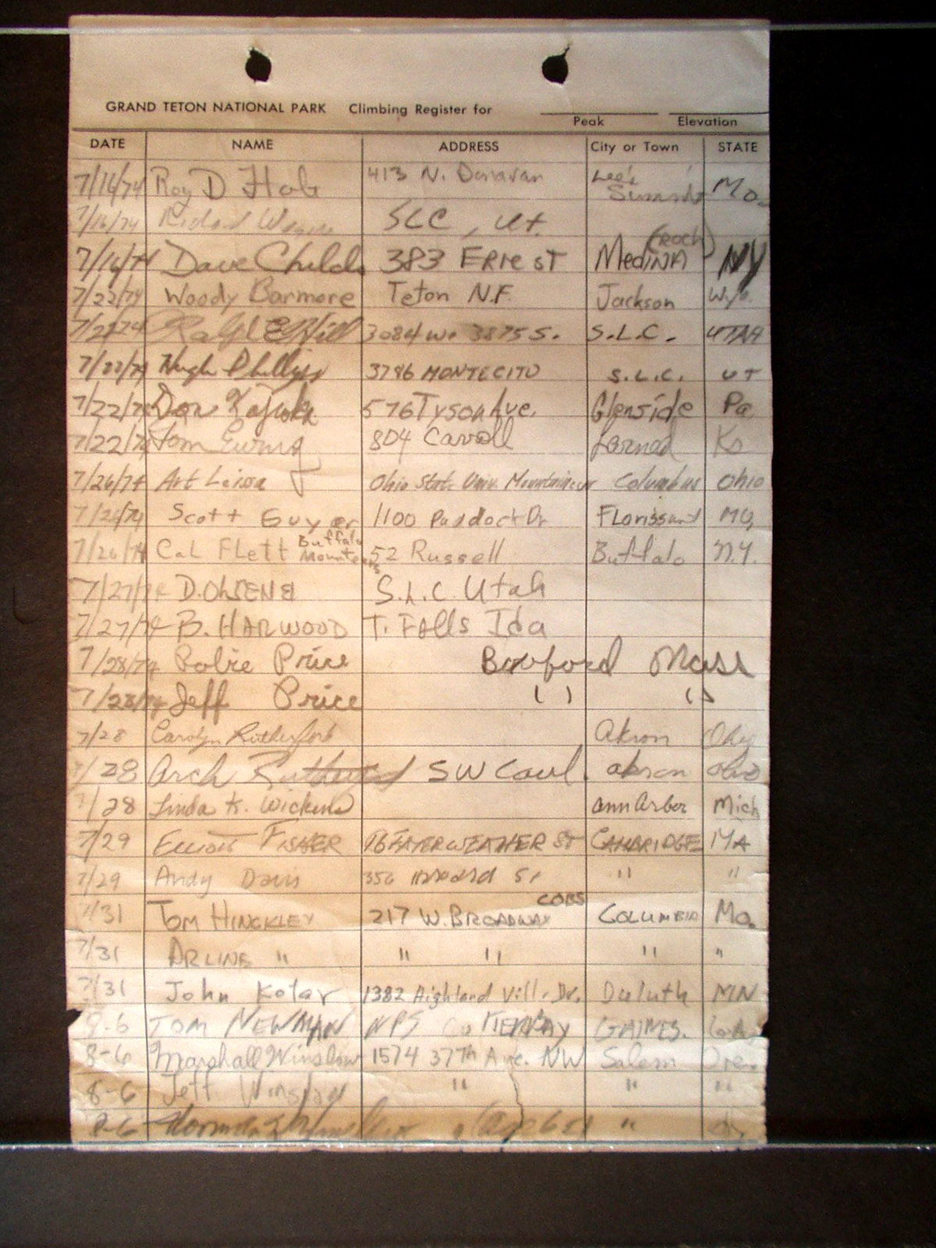 GRAND TETON NATIONAL PARK Climbing Register for
Peak Elevation
DATE NAME ADDRESS City or Town STATE
7/16/74 Roy D 413 N. Donavan Lee's Summit Mo.
7/16/74 Richard SLC, Ut.
7/16/74 Dave Childs 383 ERIE ST MedinA (ROCH) NY
7/22/74 Woody Barmore Teton N.F. Jackson Wyo.
7/22/74 Ralph E Hill 3084 W. 3875 S. S.L.C. UTAH
7/22/74 Hugh Phillips 3786 MONTECITO S.L.C. UT
7/22/74 Don 576 Tyson Ave. Glenside Pa
7/22/74 Tom Ewing 804 Carroll Larned Ks
7/26/74 Art Ohio State Univ. Mountaineer Columbus Ohio
7/26/74 Scott Guyer 1100 Paddock Dr Florissant MO,
7/26/74 Cal Flett Buffalo Mounteers 52 Russell Buffalo N.Y.
7/27/74 D. OLSEN S.L.C. Utah
7/27/74 B. HARWOOD T. Falls Ida
7/28/74 Robie Price Boxford Mass
7/28/74 Jeff Price " "
7/28 Carolyn Rutherford Akron Ohio
7/28 Arch Rutherford SW Cowl. akron ohio
7/28 Linda K. Wickens ann Arbor Mich
7/29 Elliott FISHER 76 FAYERWEATHER ST CAMBRIDGE MA
7/29 Andy Davis 356 Harvard St " "
7/31 TOM HINCKLEY 217 W. BROADWAY COBS COLUMBIA Mo.
7/31 ARLINE " " " " "
7/31 John Kolar 1382 Highland Vill. Dr. Duluth MN
8-6 TOM NEWMAN NPS GAINES.
8-6 Marshall Winslow 1574 37th Ave. NW Salem Ore.
8-6 Jeff Winslow " " "
8-6 Winslow (age 6) "